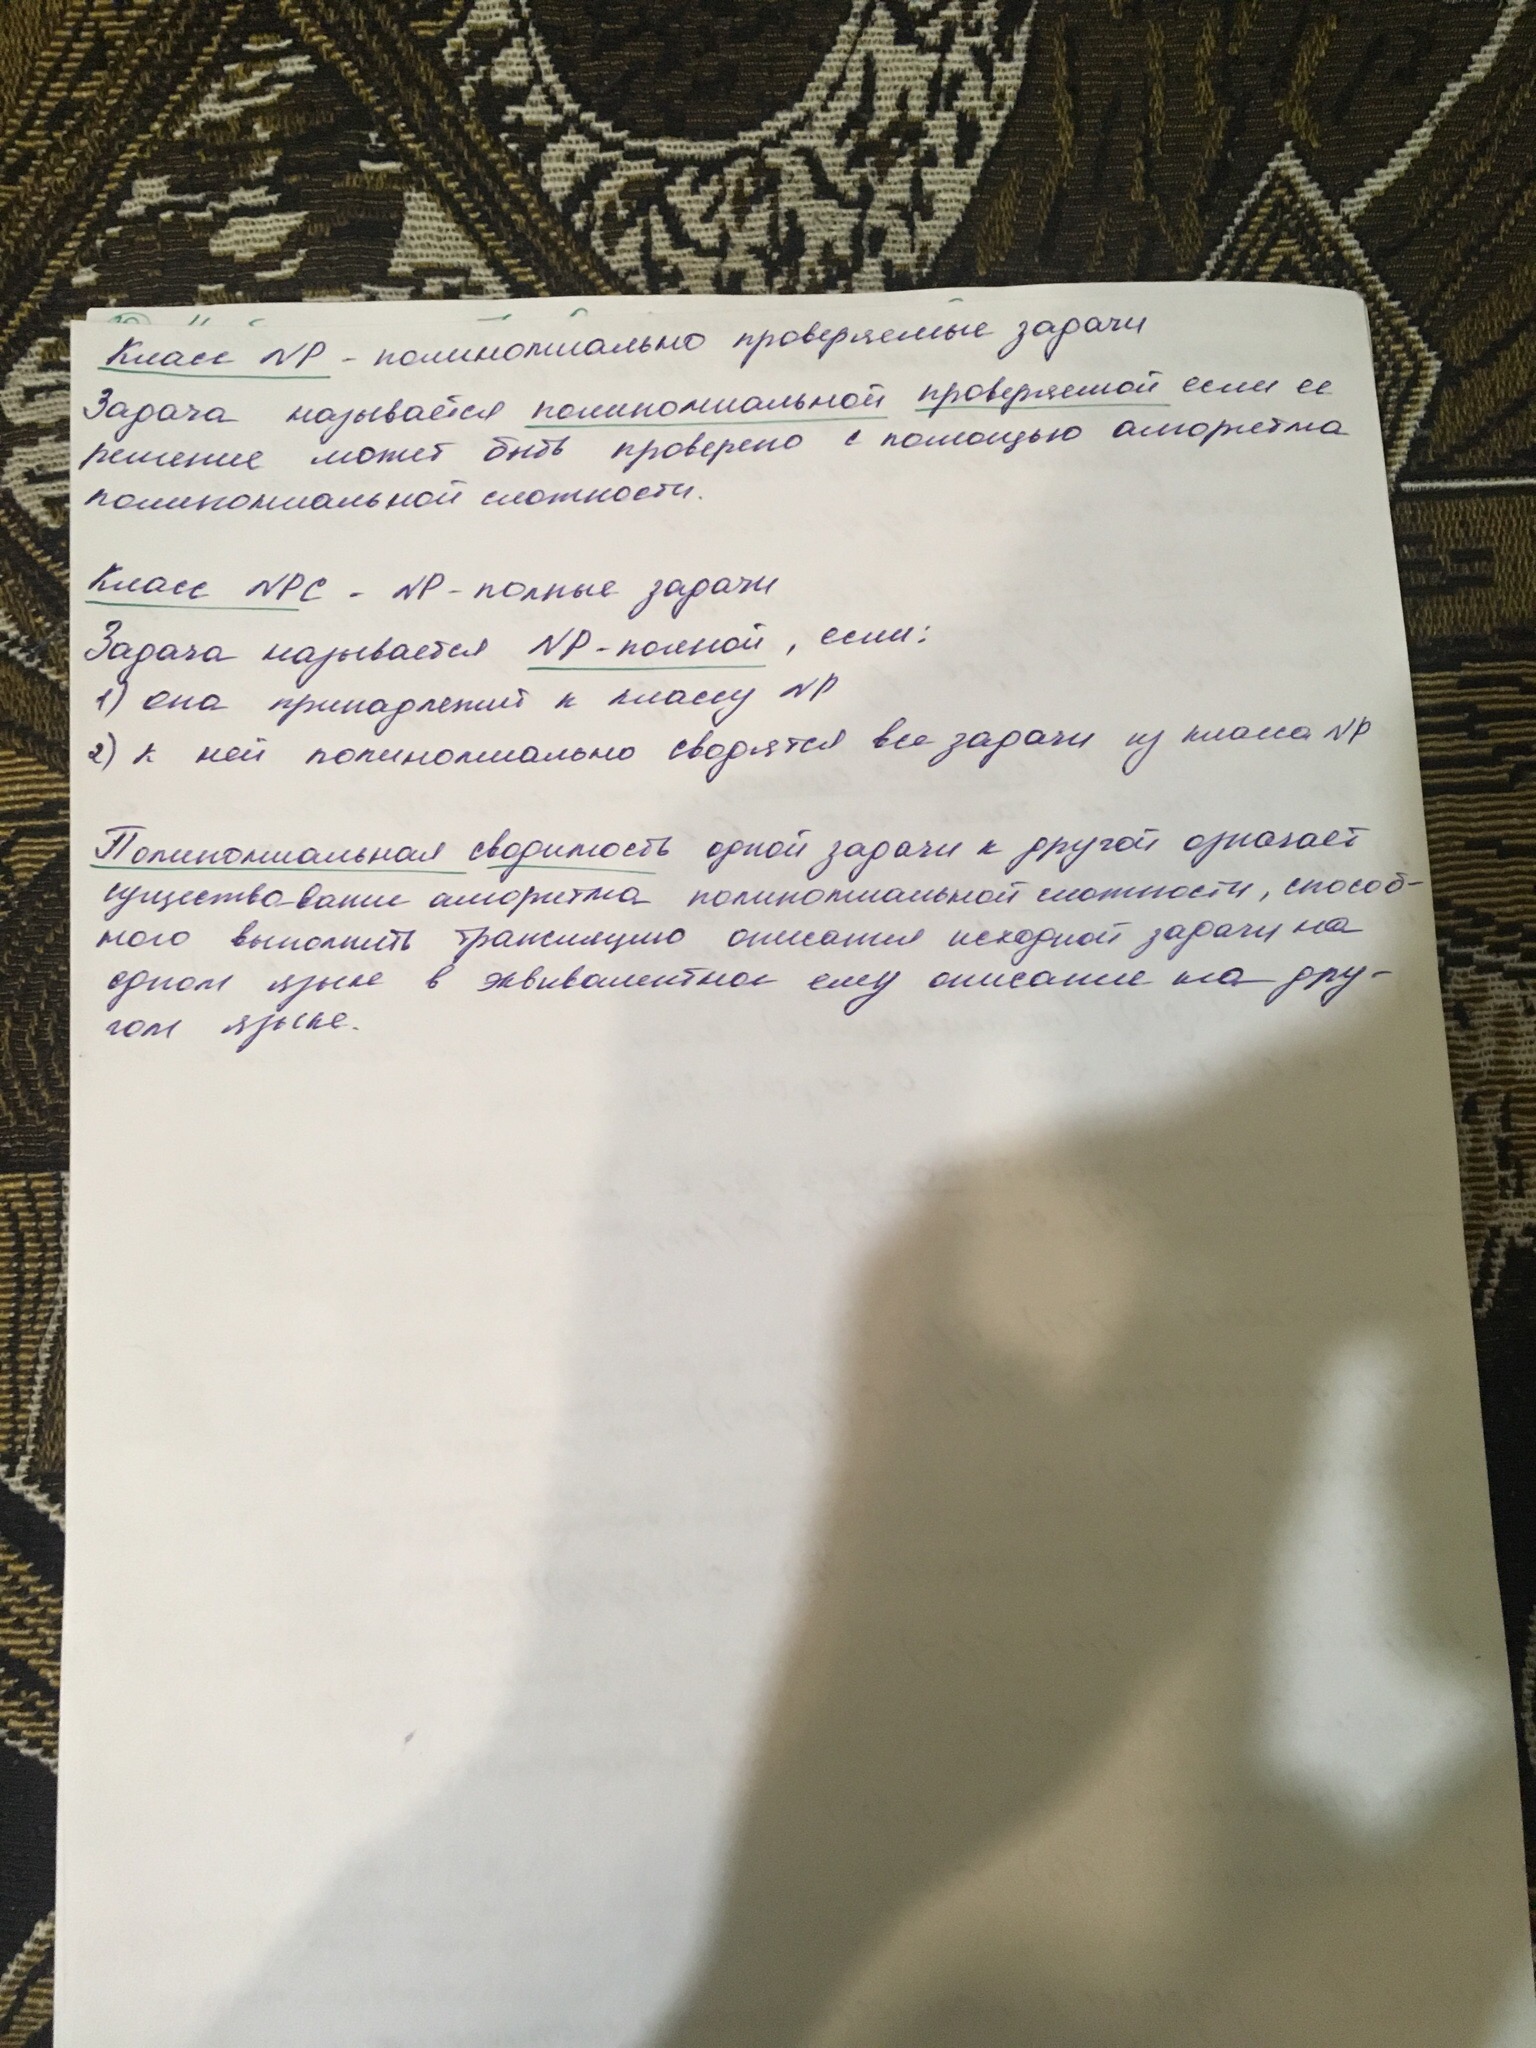 Класс NP - полиномиально проверяемые задачи
Задача называется полиномиальной проверяемой если ее
решение может быть проверено с помощью алгоритма
полиномиальной сложности.
Класс NPC - NP-полные задачи
Задача называется NP-полной, если:
1) она принадлежит к классу NP
2) к ней полиномиально сводятся все задачи из класса NP
Полиномиальная сводимость одной задачи к другой означает
существование алгоритма полиномиальной сложности, способ-
ного выполнить трансляцию описания исходной задачи на
одном языке в эквивалентное ему описание на дру-
гом языке.